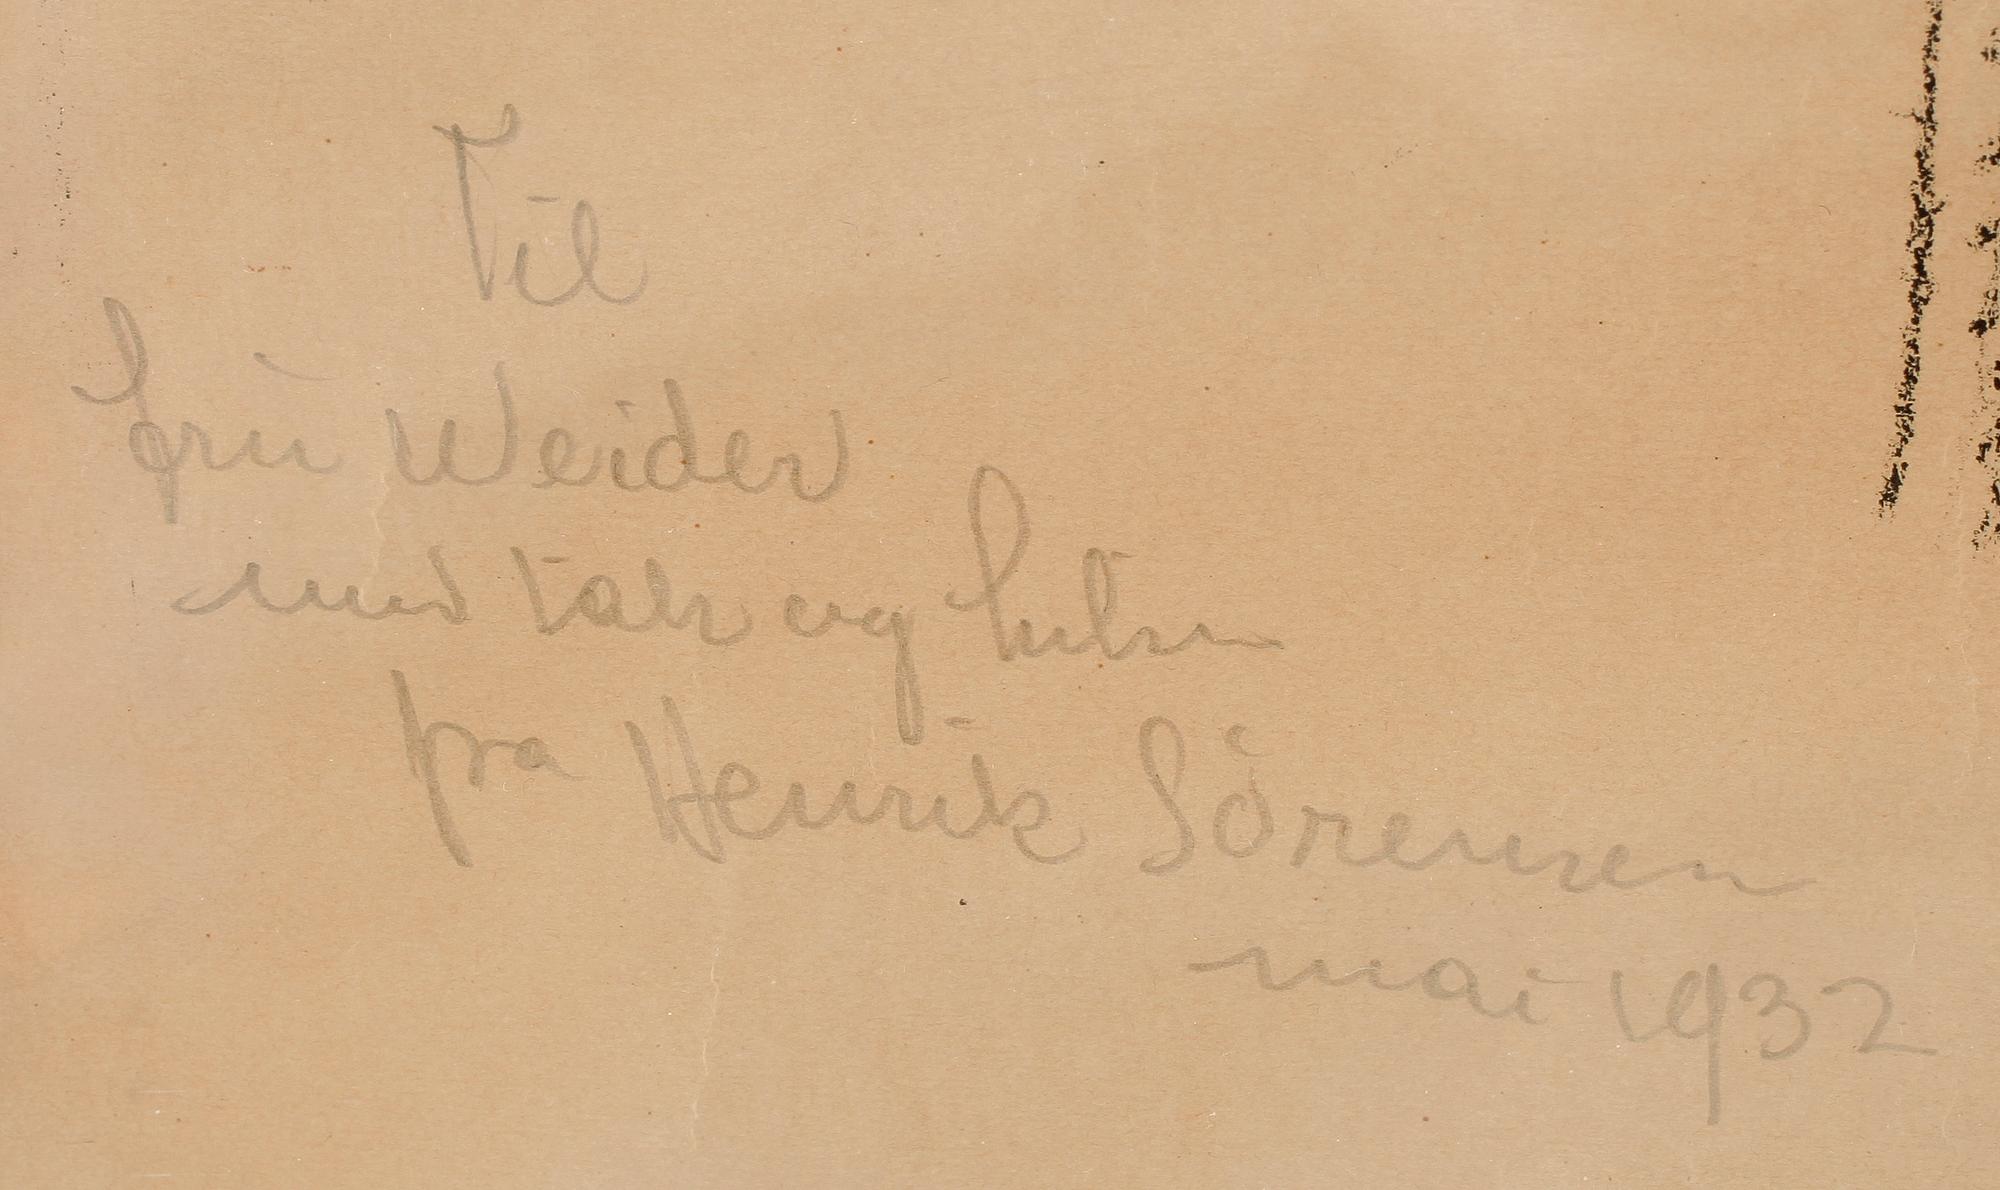 Til
fru Weider
med takk og hilsen
fra Henrik Sörensen
mai 1932